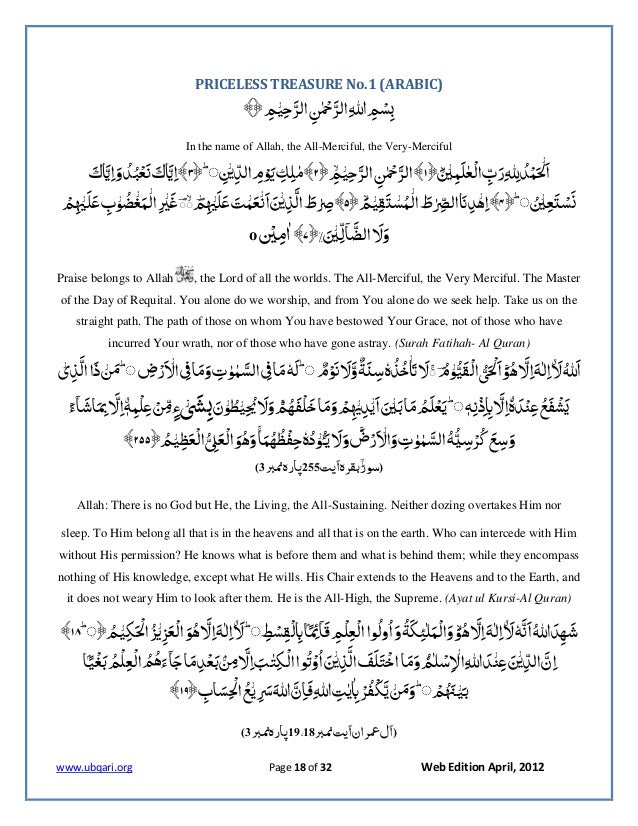 PRICELESS TREASURE No.1 (ARABIC)
بِسْمِ اللهِ الرَّحْمٰنِ الرَّحِیْمِ ﴿﴾
In the name of Allah, the All-Merciful, the Very-Merciful
اَلْحَمْدُ لِلهِ رَبِّ الْعٰلَمِیْنَ ﴿۱﴾ الرَّحْمٰنِ الرَّحِیْمِ ﴿۲﴾ مٰلِکِ یَوْمِ الدِّیْنِ ﴿۳﴾ اِیَّاکَ نَعْبُدُ وَ اِیَّاکَ
نَسْتَعِیْنُ ﴿۴﴾ اِهْدِنَا الصِّرَاطَ الْمُسْتَقِیْمَ ﴿۵﴾ صِرَاطَ الَّذِیْنَ اَنْعَمْتَ عَلَیْهِمْ غَیْرِ الْمَغْضُوْبِ عَلَیْهِمْ
وَلَا الضَّآلِّیْنَ ﴿۷﴾ اٰمِیْن o
Praise belongs to Allah , the Lord of all the worlds. The All-Merciful, the Very Merciful. The Master
of the Day of Requital. You alone do we worship, and from You alone do we seek help. Take us on the
straight path. The path of those on whom You have bestowed Your Grace, not of those who have
incurred Your wrath, nor of those who have gone astray. (Surah Fatihah- Al Quran)
اَللهُ لَاۤ اِلٰهَ اِلَّا هُوَ اَلْحَیُّ الْقَیُّوْمُ لَا تَاْخُذُهٗ سِنَةٌ وَّلَا نَوْمٌ لَهٗ مَا فِی السَّمٰوٰتِ وَمَا فِی الْاَرْضِ مَنْ ذَا الَّذِیْ
یَشْفَعُ عِنْدَهٗۤ اِلَّا بِاِذْنِهٖ یَعْلَمُ مَا بَیْنَ اَیْدِیْهِمْ وَمَا خَلْفَهُمْ وَلَا یُحِیْطُوْنَ بِشَیْءٍ مِّنْ عِلْمِهٖۤ اِلَّا بِمَا شَآءَ
وَسِعَ کُرْسِیُّهُ السَّمٰوٰتِ وَالْاَرْضَ وَلَا یَـُٔوْدُهٗ حِفْظُهُمَا وَهُوَ الْعَلِیُّ الْعَظِیْمُ ﴿۲۵۵﴾
(سورۃ بقرہ آیت 255 پارہ نمبر 3)
Allah: There is no God but He, the Living, the All-Sustaining. Neither dozing overtakes Him nor
sleep. To Him belong all that is in the heavens and all that is on the earth. Who can intercede with Him
without His permission? He knows what is before them and what is behind them; while they encompass
nothing of His knowledge, except what He wills. His Chair extends to the Heavens and to the Earth, and
it does not weary Him to look after them. He is the All-High, the Supreme. (Ayat ul Kursi-Al Quran)
شَهِدَ اللهُ اَنَّهٗ لَاۤ اِلٰهَ اِلَّا هُوَ وَ الْمَلٰٓئِکَةُ وَ اُولُوا الْعِلْمِ قَآئِمًۢا بِالْقِسْطِ لَاۤ اِلٰهَ اِلَّا هُوَ الْعَزِیْزُ الْحَکِیْمُ ﴿۱۸﴾
اِنَّ الدِّیْنَ عِنْدَ اللهِ الْاِسْلٰمُ وَمَا اخْتَلَفَ الَّذِیْنَ اُوْتُوا الْکِتٰبَ اِلَّا مِنْۢ بَعْدِ مَا جَآءَهُمُ الْعِلْمُ بَغْیًۢا
بَیْنَهُمْ وَمَنْ یَّکْفُرْ بِاٰیٰتِ اللهِ فَاِنَّ اللهَ سَرِیْعُ الْحِسَابِ ﴿۱۹﴾
(آل عمران آیت نمبر 19،18 پارہ نمبر 3)
www.ubqari.org Page 18 of 32 Web Edition April, 2012